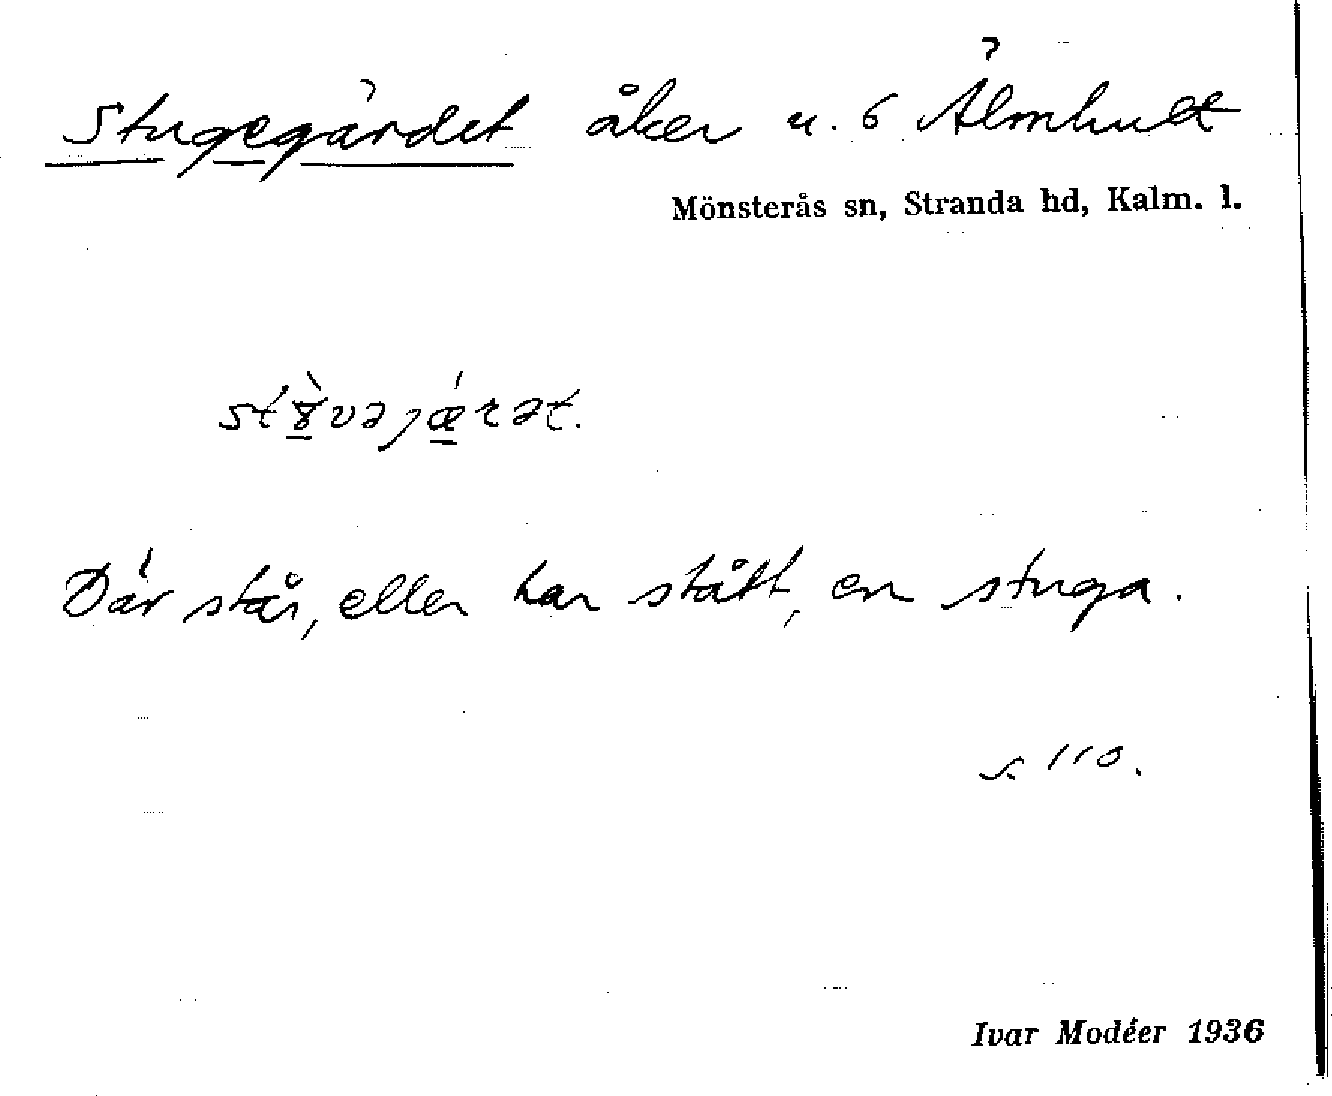 Stugegärdet åker u. 6 Älmhult
Mönsterås sn, Stranda hd, Kalm. l.
Där står, eller har stått, en stuga.
s. 110.
Ivar Modéer 1936